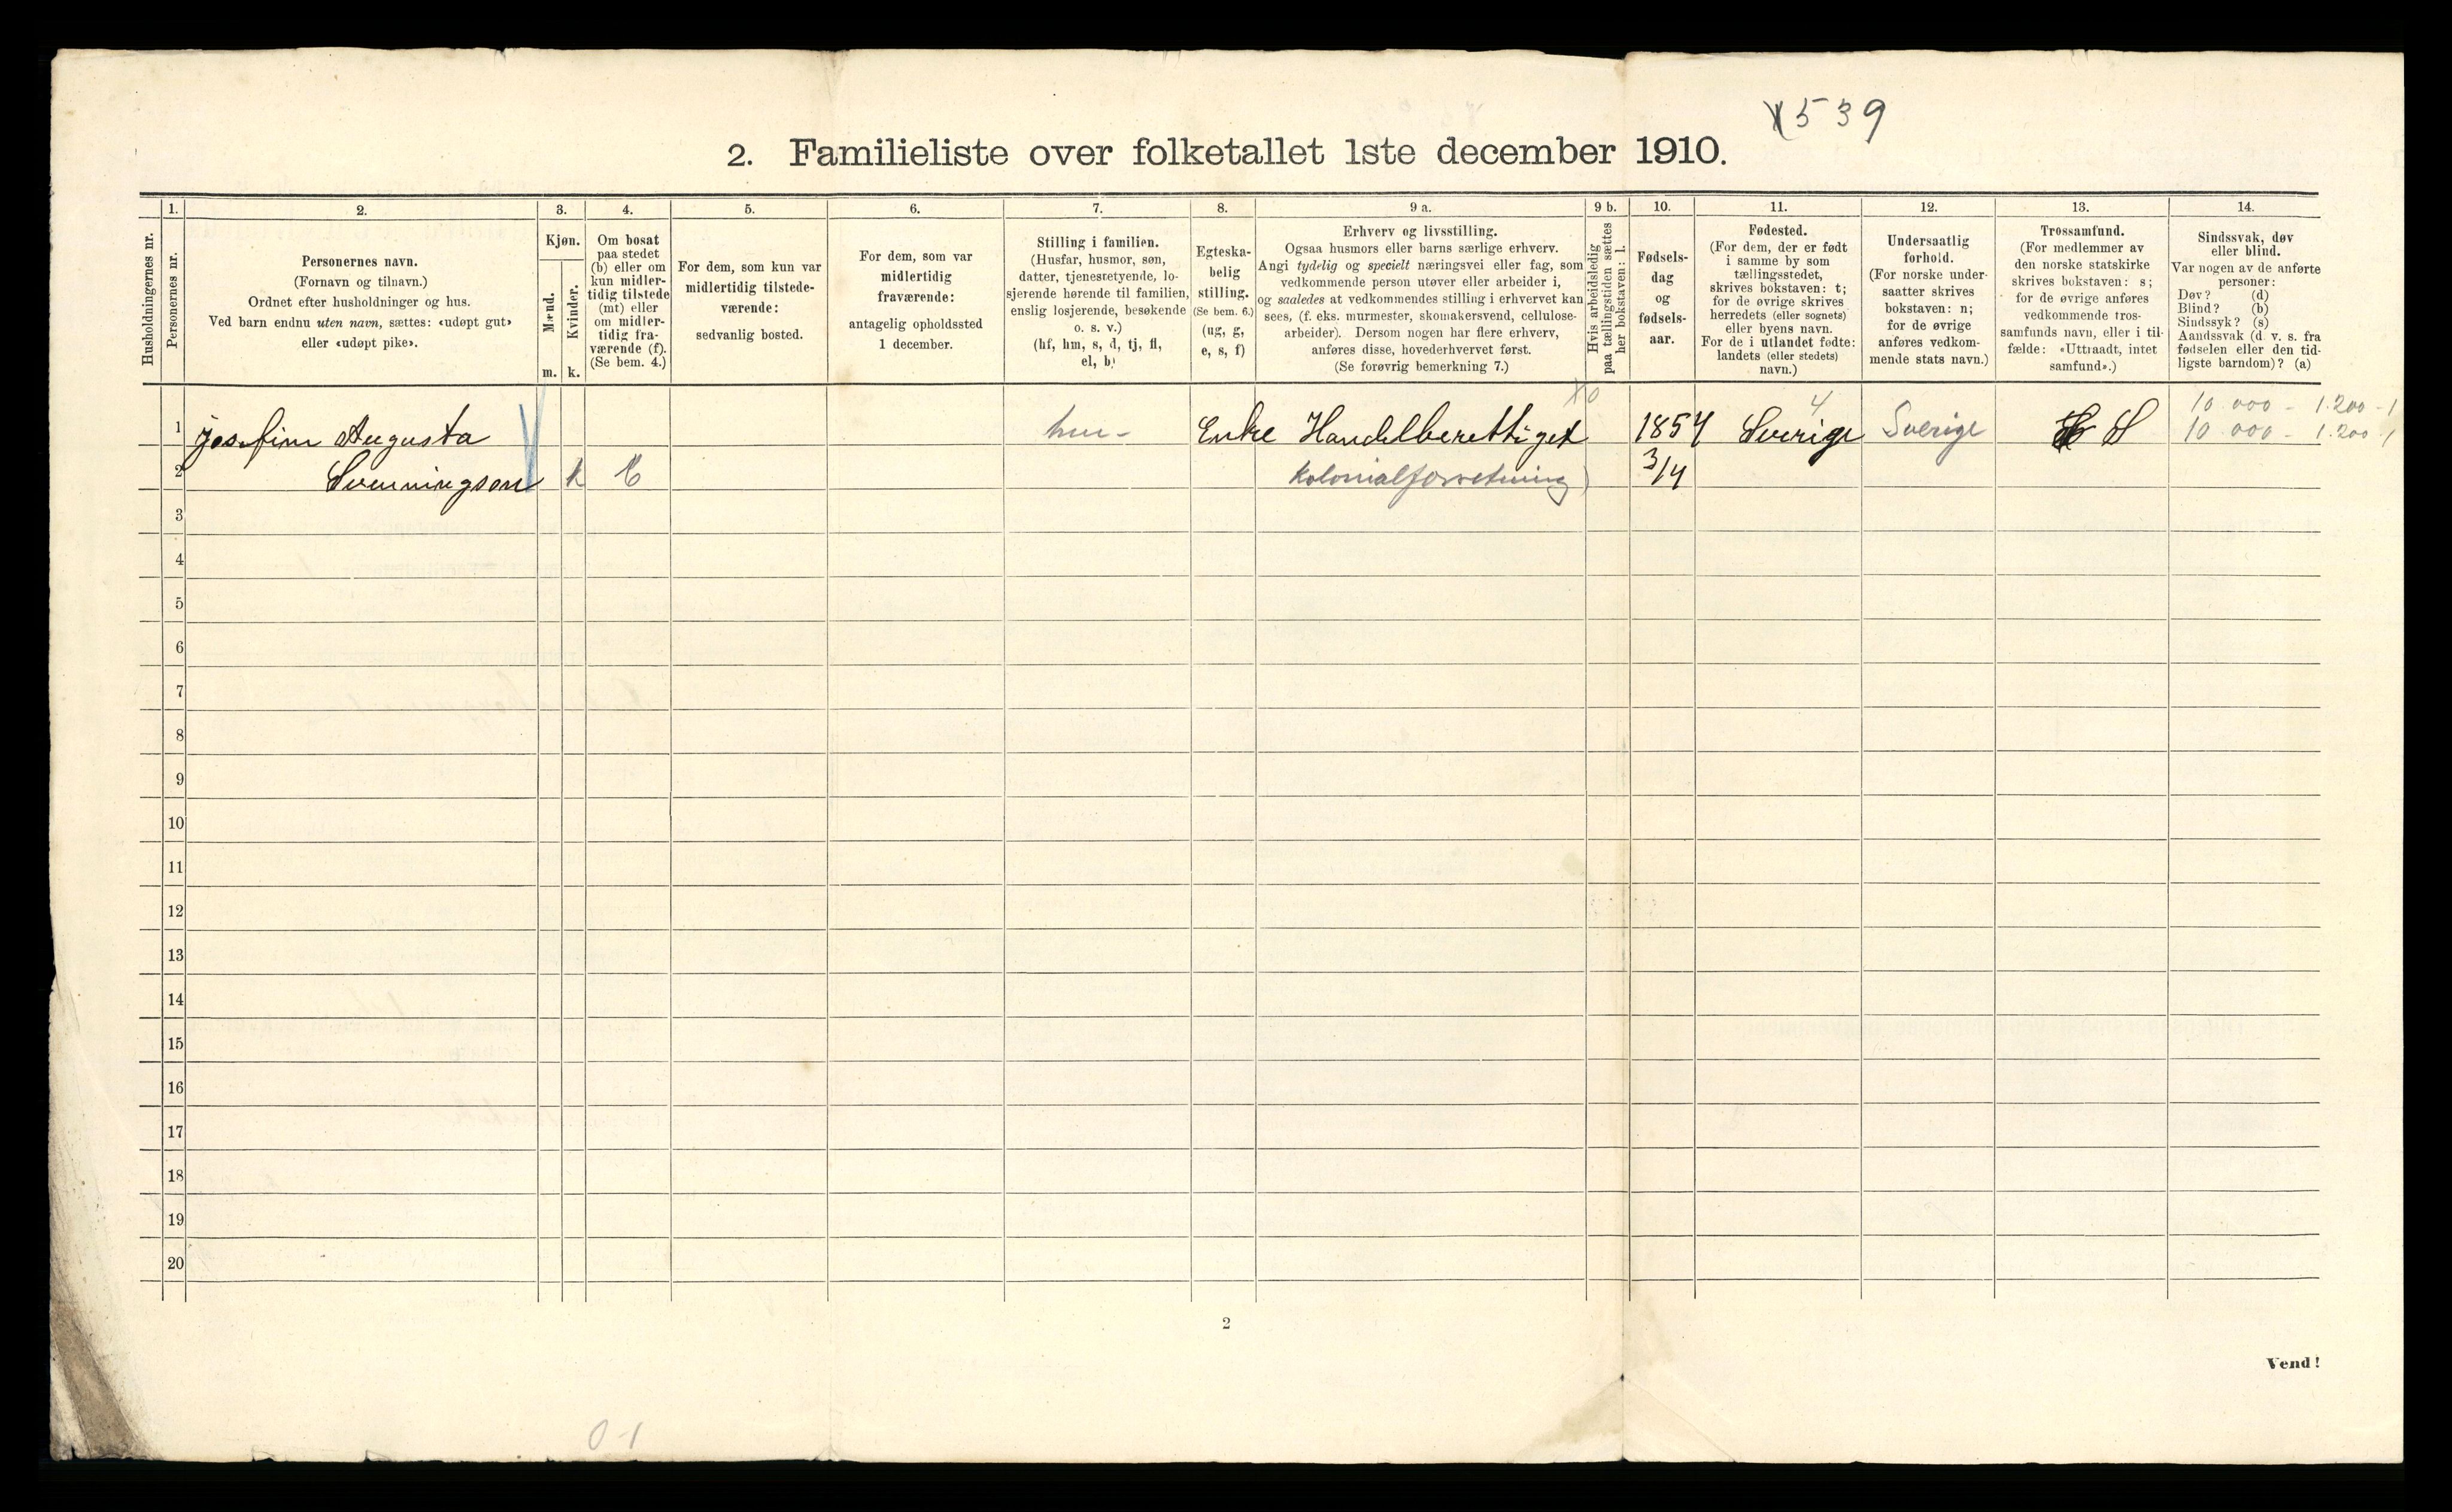 539
2. Familieliste over folketallet 1ste december 1910.
Husholdningernes nr.
1.
Personernes nr.
2.
Personernes navn.
(Fornavn og tilnavn.)
Ordnet efter husholdninger og hus.
Ved barn endnu uten navn, sættes: «udøpt gut»
eller «udøpt pike».
3.
Kjøn.
Mænd.
Kvinder.
m. k.
4.
Om bosat
paa stedet
(b) eller om
kun midler-
tidig tilstede
(mt) eller
om midler-
tidig fra-
værende (f).
(Se bem. 4.)
5.
For dem, som kun var
midlertidig tilstede-
værende:
sedvanlig bosted.
6.
For dem, som var
midlertidig
fraværende:
antagelig opholdssted
1 december.
7.
Stilling i familien.
(Husfar, husmor, søn,
datter, tjenestetyende, lo-
sjerende hørende til familien,
enslig losjerende, besøkende
o. s. v.)
(hf, hm, s, d, tj, fl,
el, b)
8.
Egteska-
belig
stilling.
(Se bem. 6.)
(ug, g,
e, s, f)
9 a.
Erhverv og livsstilling.
Ogsaa husmors eller barns særlige erhverv.
Angi tydelig og specielt næringsvei eller fag, som
vedkommende person utøver eller arbeider i,
og saaledes at vedkommendes stilling i erhvervet kan
sees, (f. eks. murmester, skomakersvend, cellulose-
arbeider). Dersom nogen har flere erhverv,
anføres disse, hovederhvervet først.
(Se forøvrig bemerkning 7.)
9 b.
Hvis arbeidsledig
paa tællingstiden sættes
her bokstaven: l.
10.
Fødsels-
dag
og
fødsels-
aar.
11.
Fødested.
(For dem, der er født
i samme by som
tællingsstedet,
skrives bokstaven: t;
for de øvrige skrives
herredets (eller sognets)
eller byens navn.
For de i utlandet fødte:
landets (eller stedets)
navn.)
12.
Undersaatlig
forhold.
(For norske under-
saatter skrives
bokstaven: n;
for de øvrige
anføres vedkom-
mende stats navn.)
13.
Trossamfund.
(For medlemmer av
den norske statskirke
skrives bokstaven: s;
for de øvrige anføres
vedkommende tros-
samfunds navn, eller i til-
fælde: «Uttraadt, intet
samfund».)
14.
Sindssvak, døv
eller blind.
Var nogen av de anførte
personer:
Døv? (d)
Blind? (b)
Sindssyk? (s)
Aandssvak (d. v. s. fra
fødselen eller den tid-
ligste barndom)? (a)
x0
4
10.000 - 1.200 - 1
1 Josefine Augusta hm - Enke Handelberettiget 1854 Sverige Sverige S 10.000 - 1.200 - 1
2 Svenningsen k b kolonialforretning) 3/4
3
4
5
6
7
8
9
10
11
12
13
14
15
16
17
18
19
20
2
Vend!
0-1